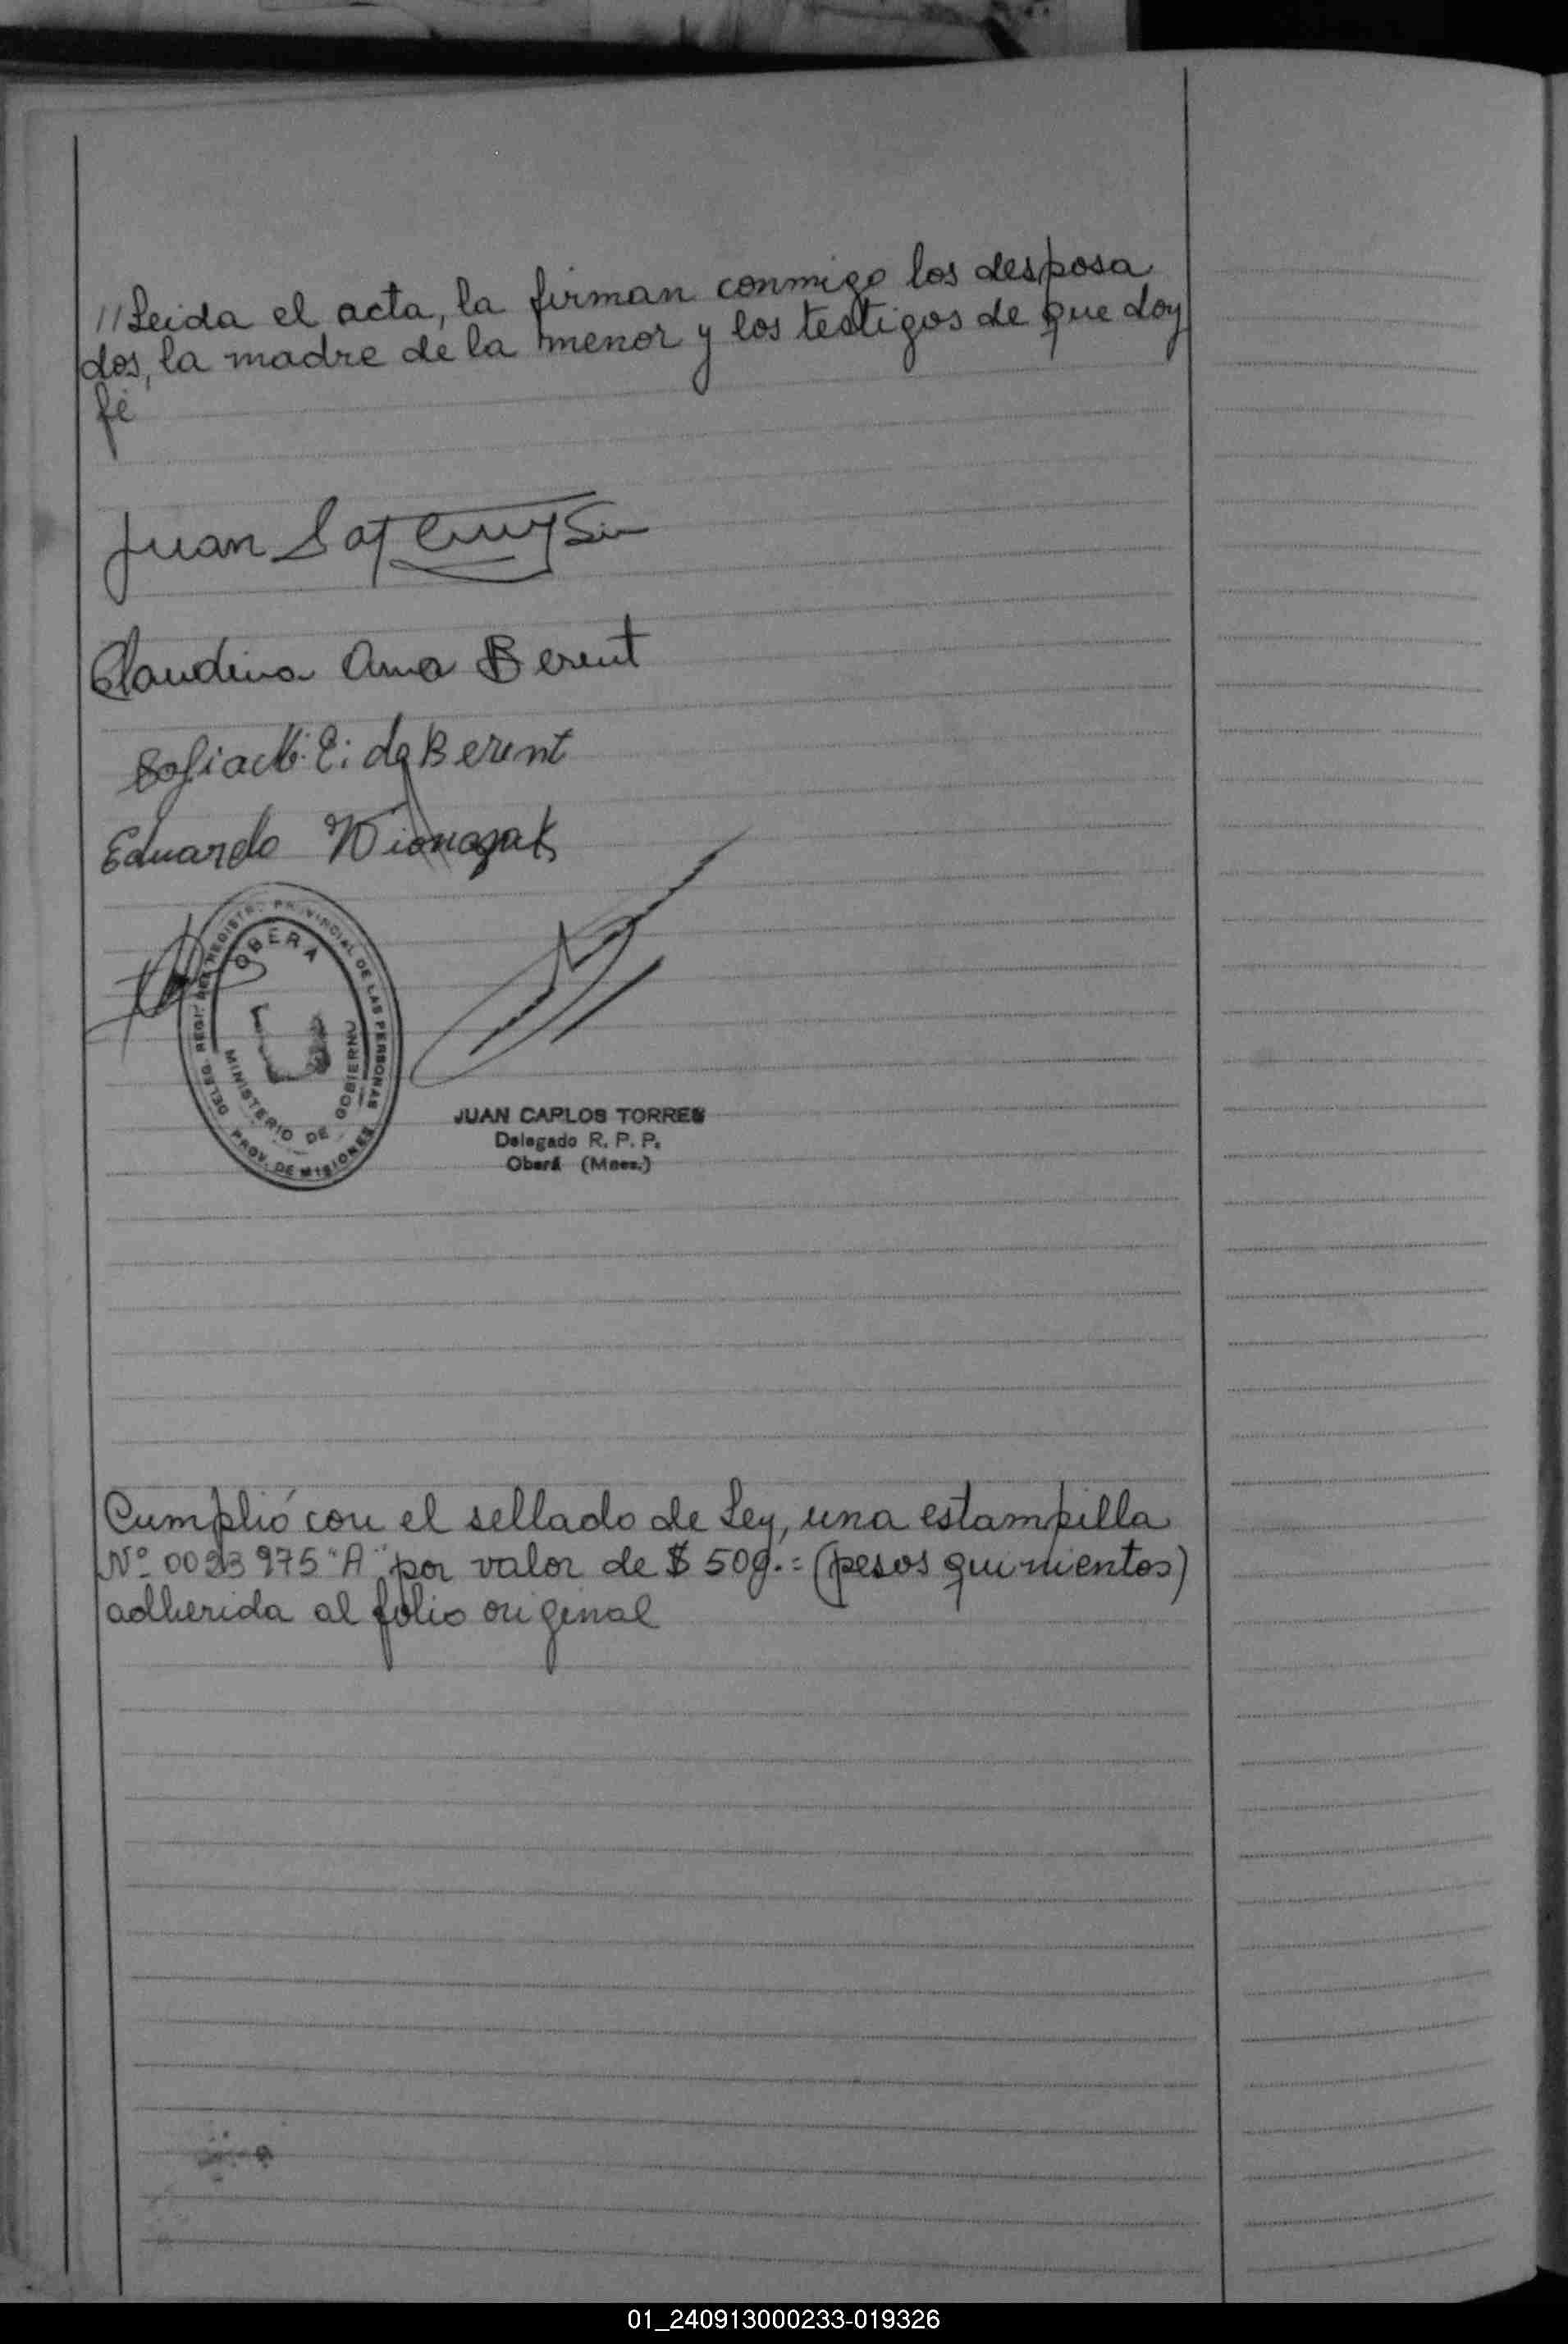 //Leida el acta, la firman conmigo los desposa
dos, la madre de la menor y los testigos de que doy
fé
Juan
Claudina Ana Berent
Sofia M. E. de Berent
Eduardo
DELEG. REGI. DEL REGISTRO PROVINCIAL DE LAS PERSONAS
OBERA
MINISTERIO DE GOBIERNO
PROV. DE MISIONES
JUAN CARLOS TORRES
Delegado R. P. P.
Oberá (Mnes.)
Cumplió con el sellado de Ley, una estampilla
Nº 0023975 "A" por valor de $ 500.= (pesos quinientos)
adherida al folio original
01_240913000233-019326